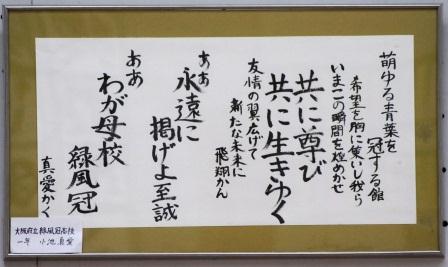 萌ゆる青葉を
冠する館
希望を胸に集いし我ら
いまこの瞬間を煌めかせ
共に尊び
共に生きゆく
友情の翼広げて
新たな未来に
飛翔かん
ああ
永遠に
掲げよ至誠
ああ
わが母校
緑風冠
真愛かく
大阪府立緑風冠高校
一年 小池真愛